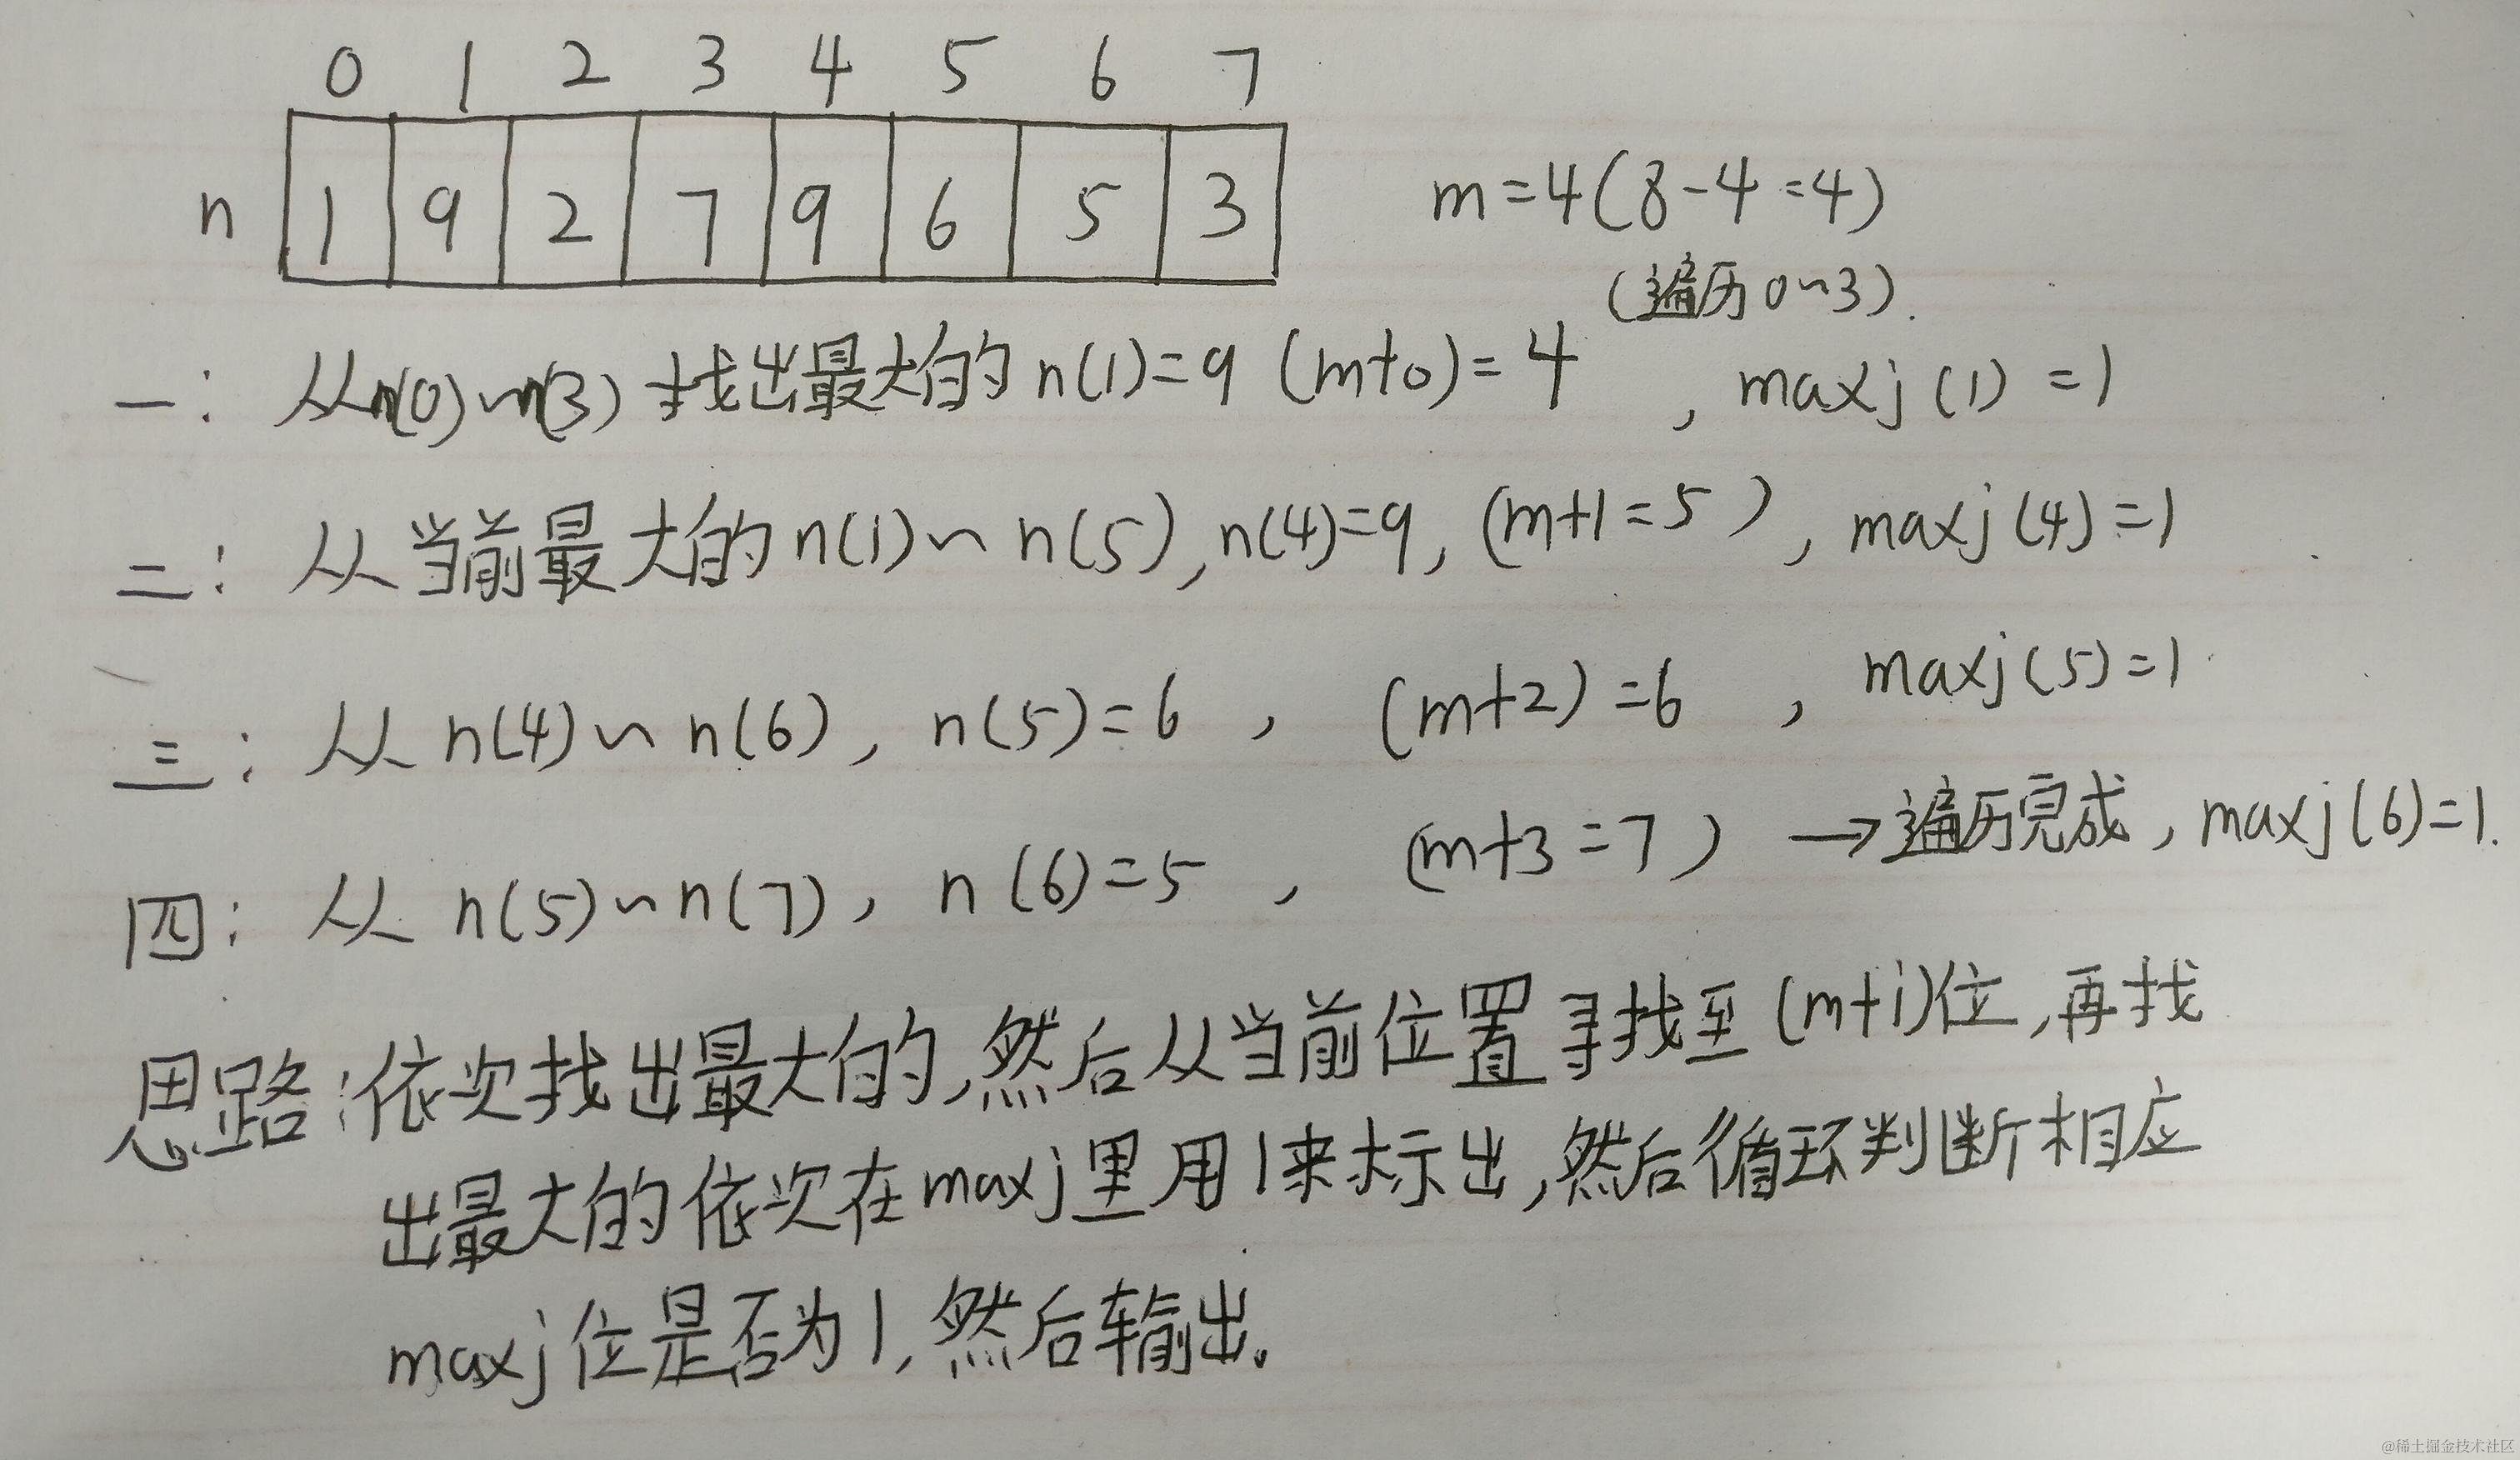 0 1 2 3 4 5 6 7
n 1 9 2 7 9 6 5 3
m=4(8-4=4)
(遍历0~3).
一: 从n(0)~n(3)找出最大的n(1)=9 (m+0)=4, maxj(1)=1
二: 从当前最大的n(1)~n(5), n(4)=9, (m+1=5), maxj(4)=1
三: 从n(4)~n(6), n(5)=6, (m+2)=6, maxj(5)=1
四: 从n(5)~n(7), n(6)=5, (m+3=7) →遍历完成, maxj(6)=1.
思路:依次找出最大的,然后从当前位置寻找至(m+i)位,再找
出最大的依次在maxj里用1来标出,然后循环判断相应
maxj位是否为1,然后输出。
@稀土掘金技术社区